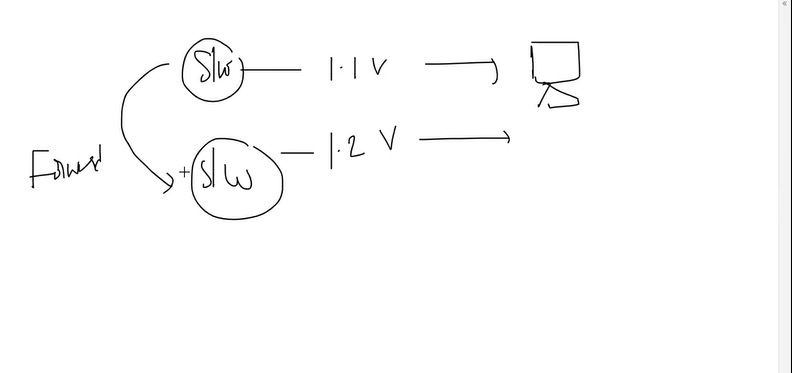 S/w 1.1 V
Forward
S/W 1.2 V